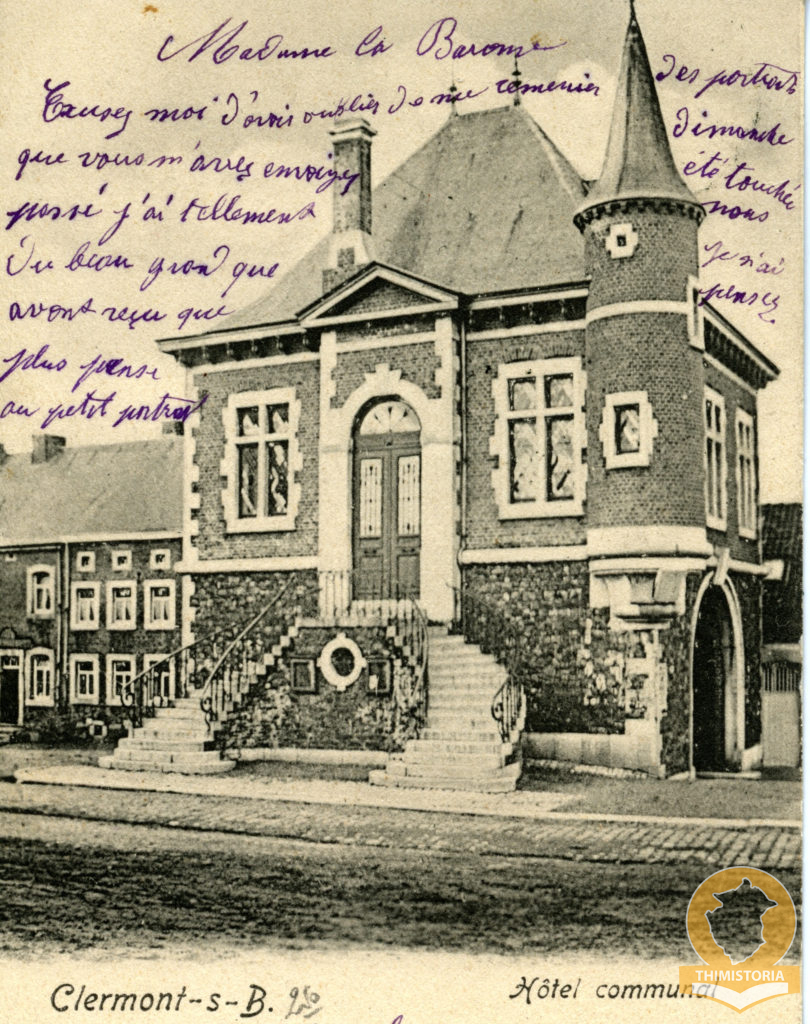 Madame la Baronne
Excusez moi d'avoir oublier de me remenier des portraits
que vous m'avres envoizer dimanche
passé j'ai tellement été touchée
Du beau grand que nous
avont reçu qué Je n'ai
plus pense pensez
au petit portrait
Clermont-s-B. 250
Hôtel communal
THIMISTORIA